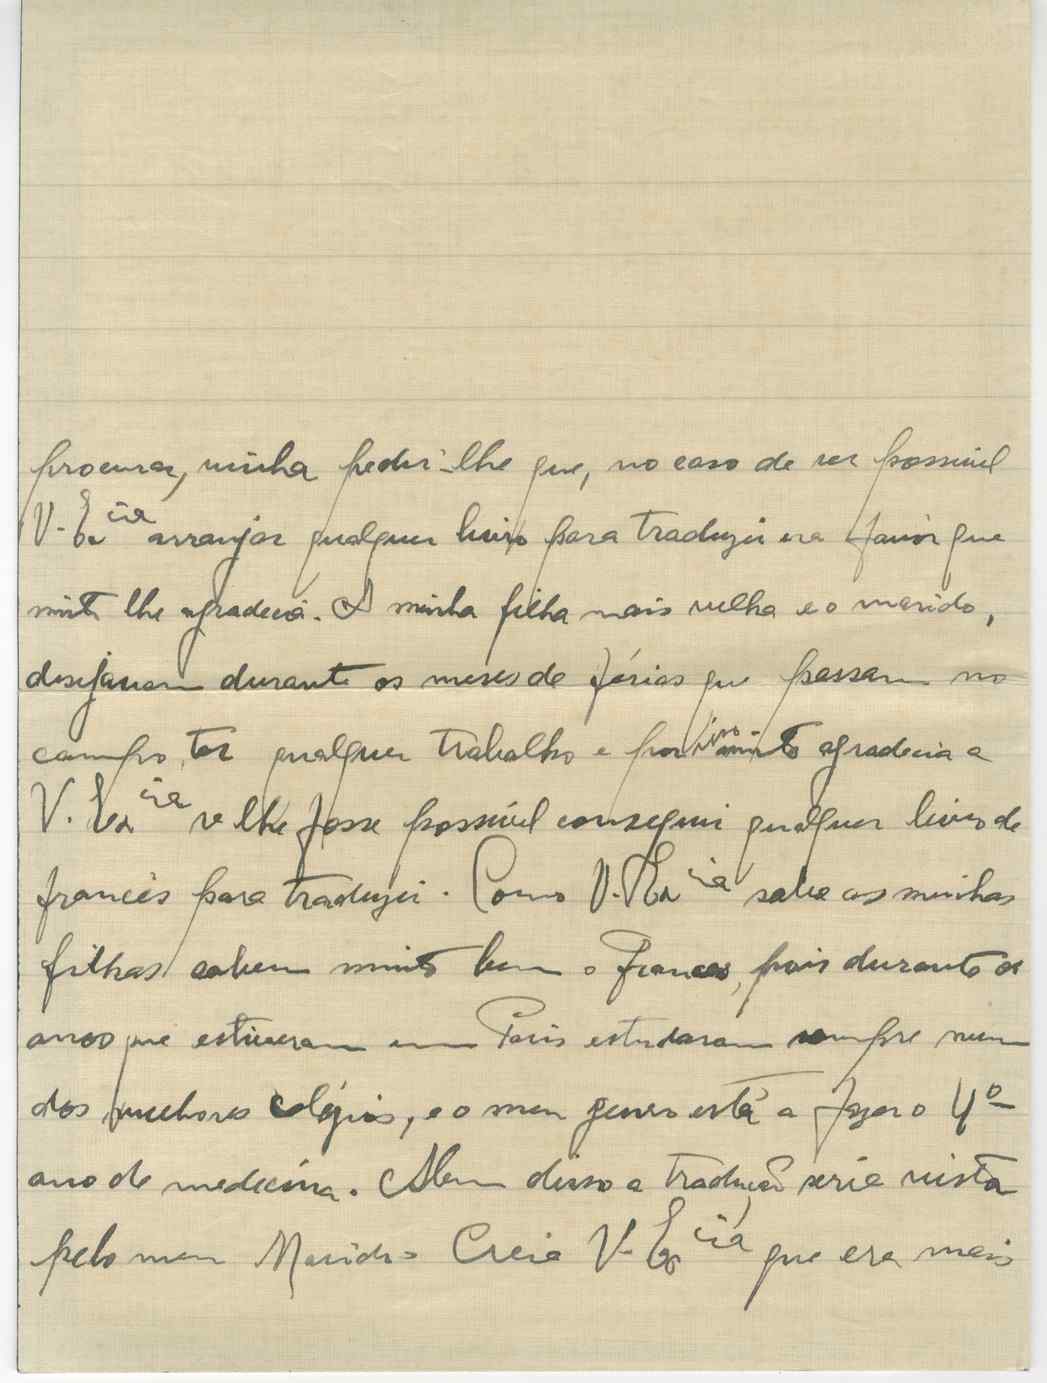 procurar, vinha pedir-lhe que, no caso de ser possivel
V. Ex.cia arranjar qualquer livro para traduzir era favor que
muito lhe agradecia. A minha filha mais velha e o marido,
desejavam durante os meses de férias que passam no
campo, ter qualquer trabalho e por isso muito agradecia a
V. Ex.cia se lhe fosse possivel conseguir qualquer livro de
francês para traduzir. Como V. Ex.cia sabe as minhas
filhas sabem muito bem o francês, pois durante os
anos que estiveram em Paris estudaram sempre num
dos melhores colégios, e o meu genro está a fazer o 4º
ano de medecina. Alem disso a tradução seria vista
pelo meu Marido. Creia V. Ex.cia que era mais